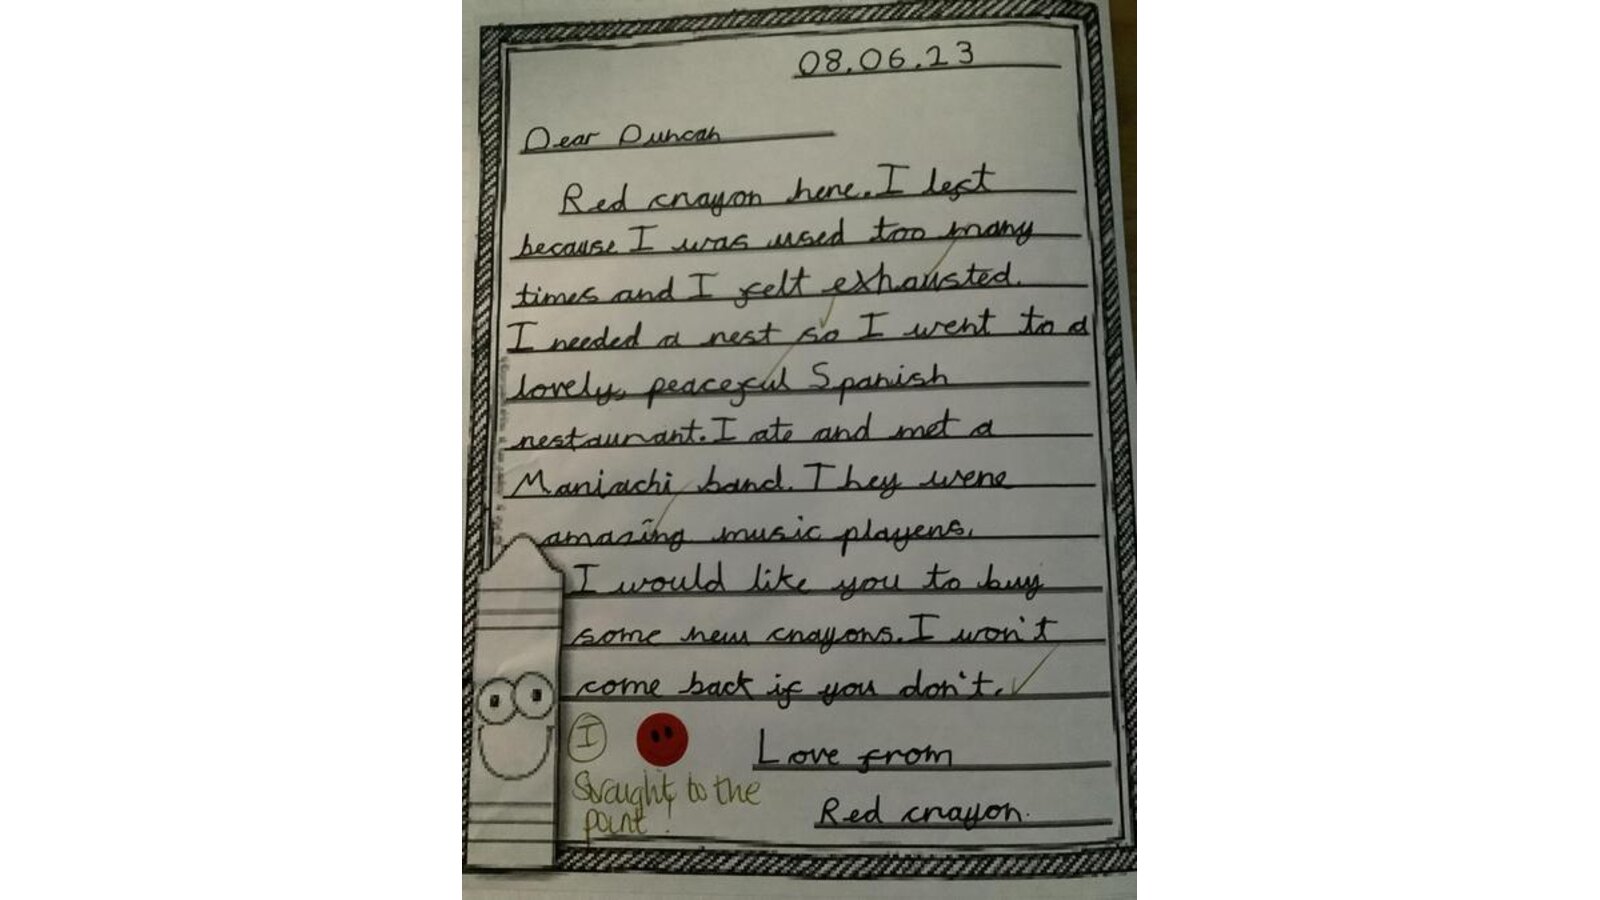 08.06.23
Dear Duncan
Red crayon here. I left
because I was used too many
times and I felt exhausted.
I needed a rest so I went to a
lovely, peaceful Spanish
restaurant. I ate and met a
Mariachi band. They were
amazing music players.
I would like you to buy
some new crayons. I won't
come back if you don't.
I
Straight to the
point!
Love from
Red crayon.